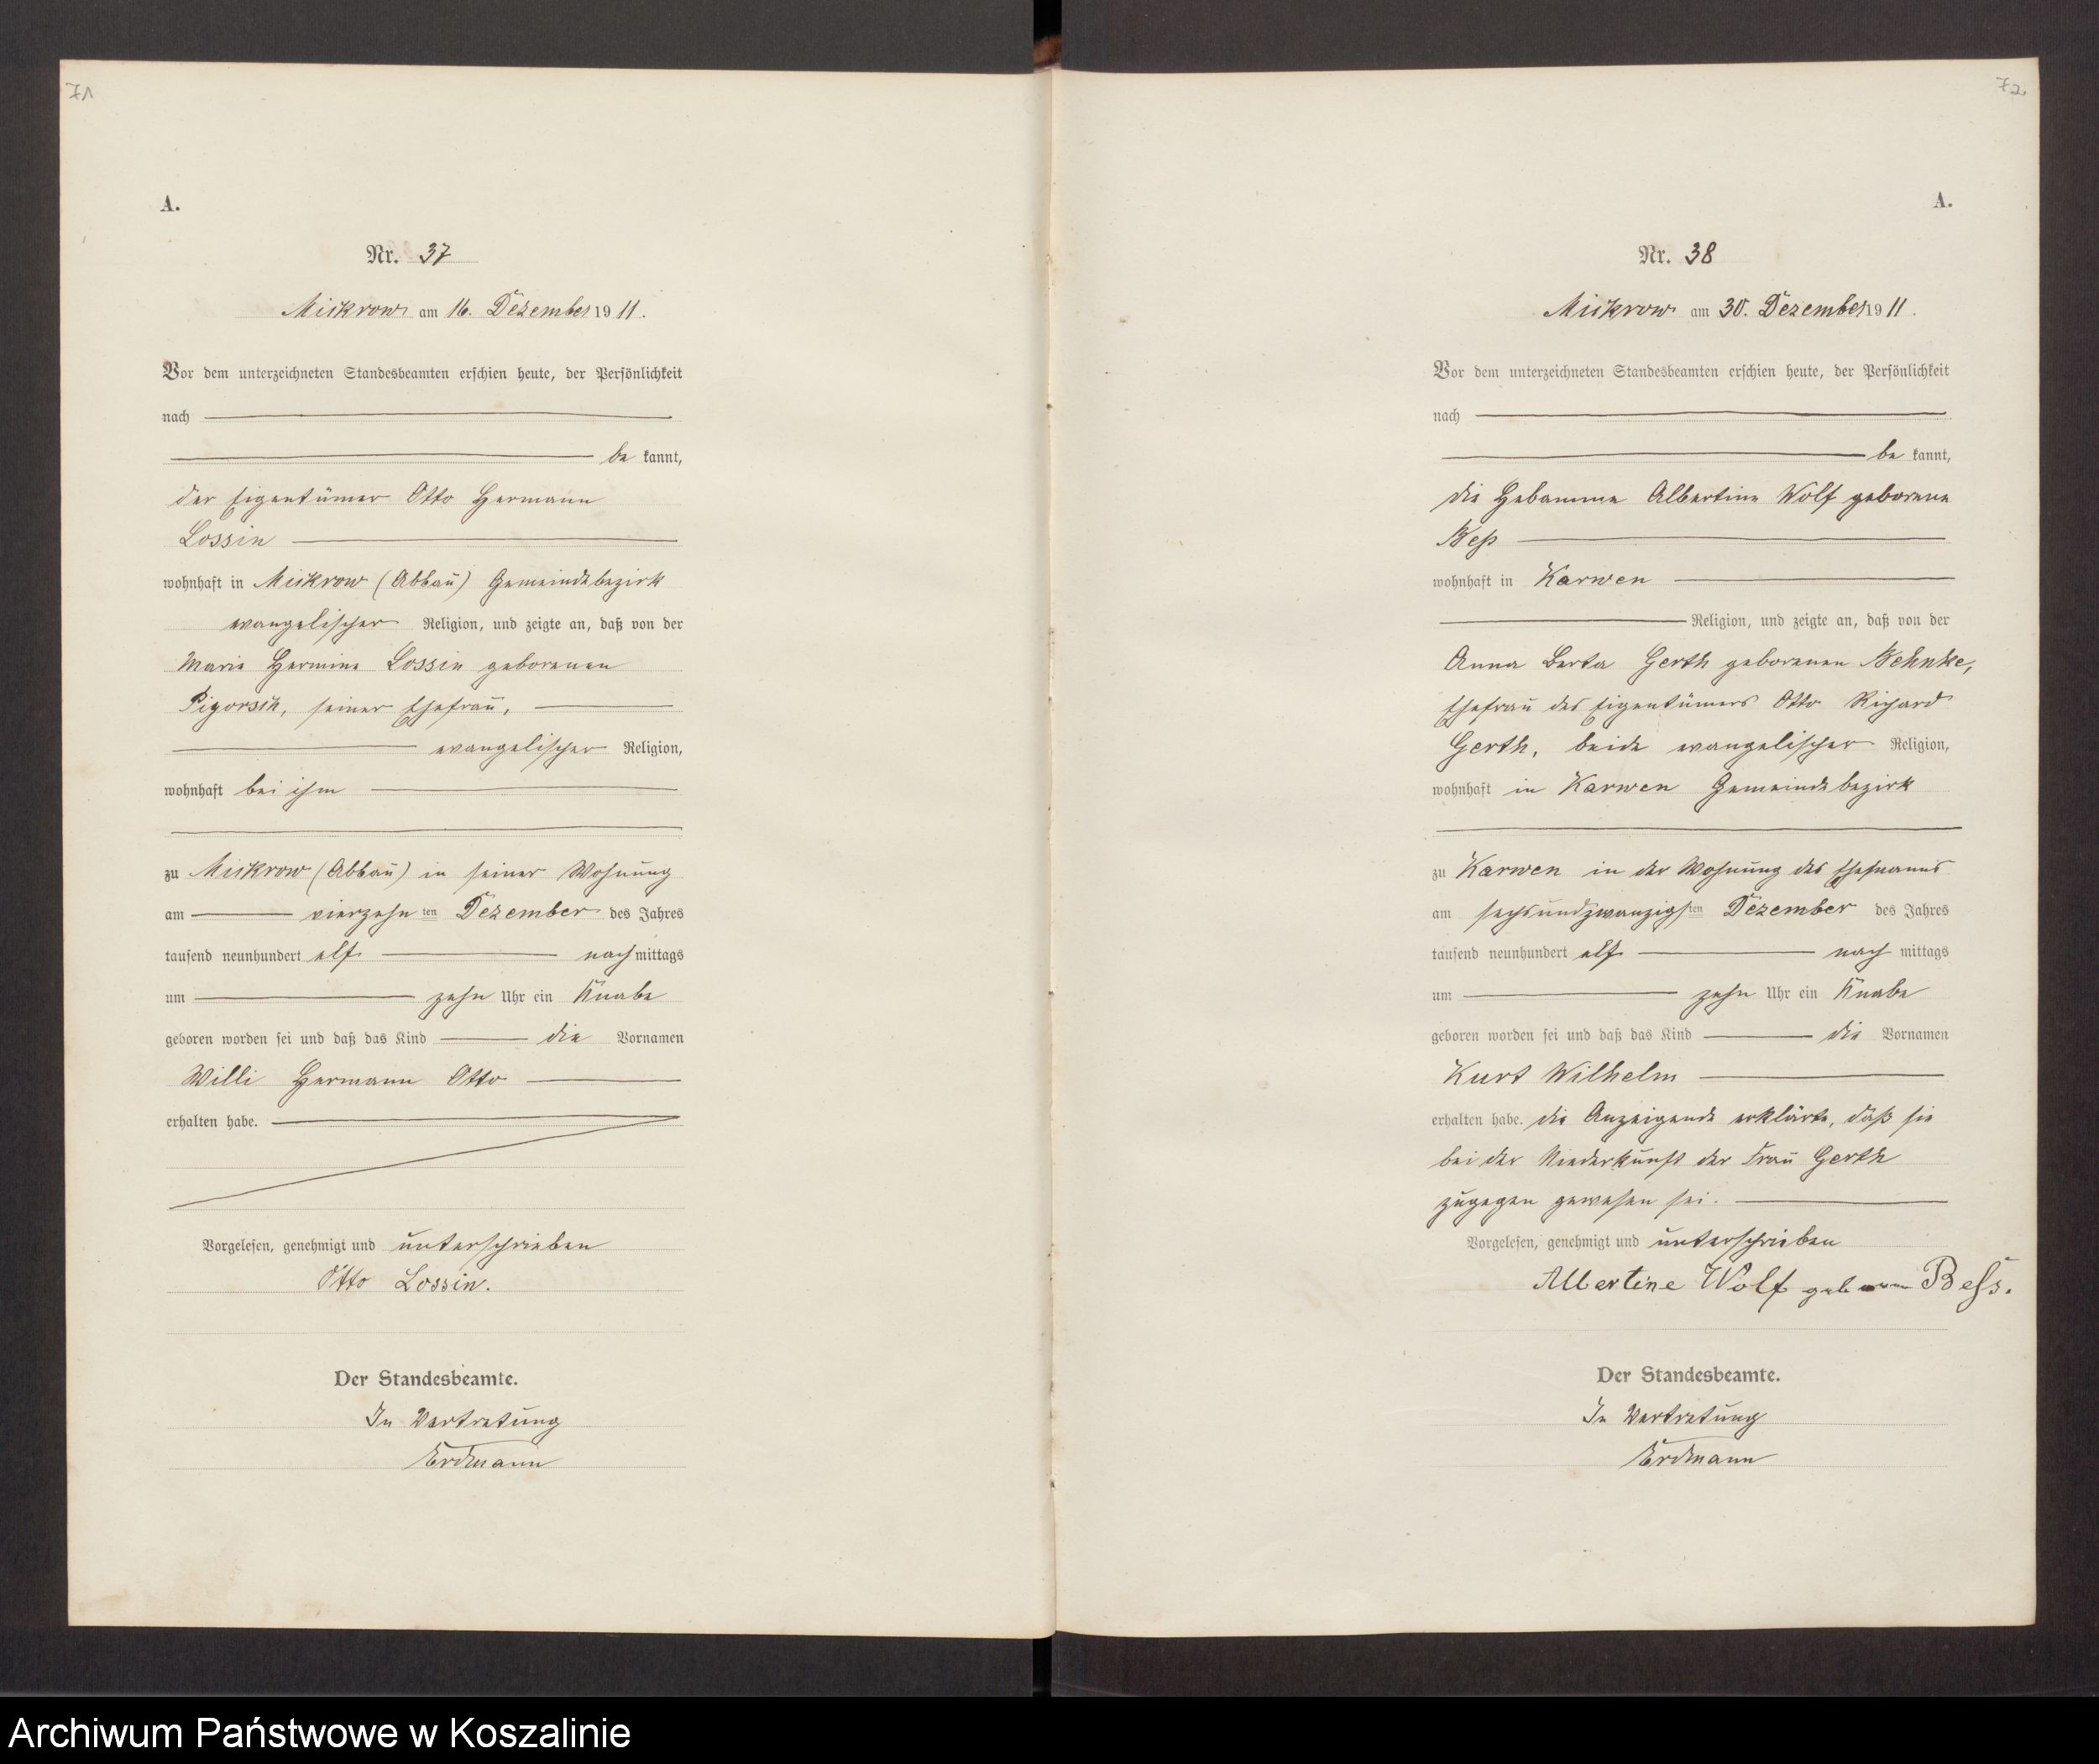 71
A.
Nr. 37
Mickrow am 16. Dezember 1911.
Vor dem unterzeichneten Standesbeamten erschien heute, der Persönlichkeit
nach
be kannt,
der Eigentümer Otto Hermann
Lossin
wohnhaft in Mickrow (Abbau) Gemeindebezirk
evangelischer Religion, und zeigte an, daß von der
Marie Hermine Lossin geborenen
Pigorsch, seiner Ehefrau,
evangelischer Religion,
wohnhaft bei ihm
zu Mickrow (Abbau) in seiner Wohnung
am vierzehn ten Dezember des Jahres
tausend neunhundert elf nach mittags
um zehn Uhr ein Knabe
geboren worden sei und daß das Kind die Vornamen
Willi Hermann Otto
erhalten habe.
Vorgelesen, genehmigt und unterschrieben
Otto Lossin.
Der Standesbeamte.
In Vertretung
Erdmann
72
A.
Nr. 38
Mickrow am 30. Dezember 1911.
Vor dem unterzeichneten Standesbeamten erschien heute, der Persönlichkeit
nach
be kannt,
die Hebamme Albertine Wolf geborene
Beß
wohnhaft in Karwen
Religion, und zeigte an, daß von der
Anna Berta Gerth geborenen Behnke,
Ehefrau des Eigentümers Otto Richard
Gerth, beide evangelischer Religion,
wohnhaft in Karwen Gemeindebezirk
zu Karwen in der Wohnung des Ehemanns
am sechsundzwanzigsten Dezember des Jahres
tausend neunhundert elf nach mittags
um zehn Uhr ein Knabe
geboren worden sei und daß das Kind die Vornamen
Kurt Wilhelm
erhalten habe. Die Anzeigende erklärte, daß sie
bei der Niederkunft der Frau Gerth
zugegen gewesen sei.
Vorgelesen, genehmigt und unterschrieben
Albertine Wolf geborene Beß.
Der Standesbeamte.
In Vertretung
Erdmann
Archiwum Państwowe w Koszalinie